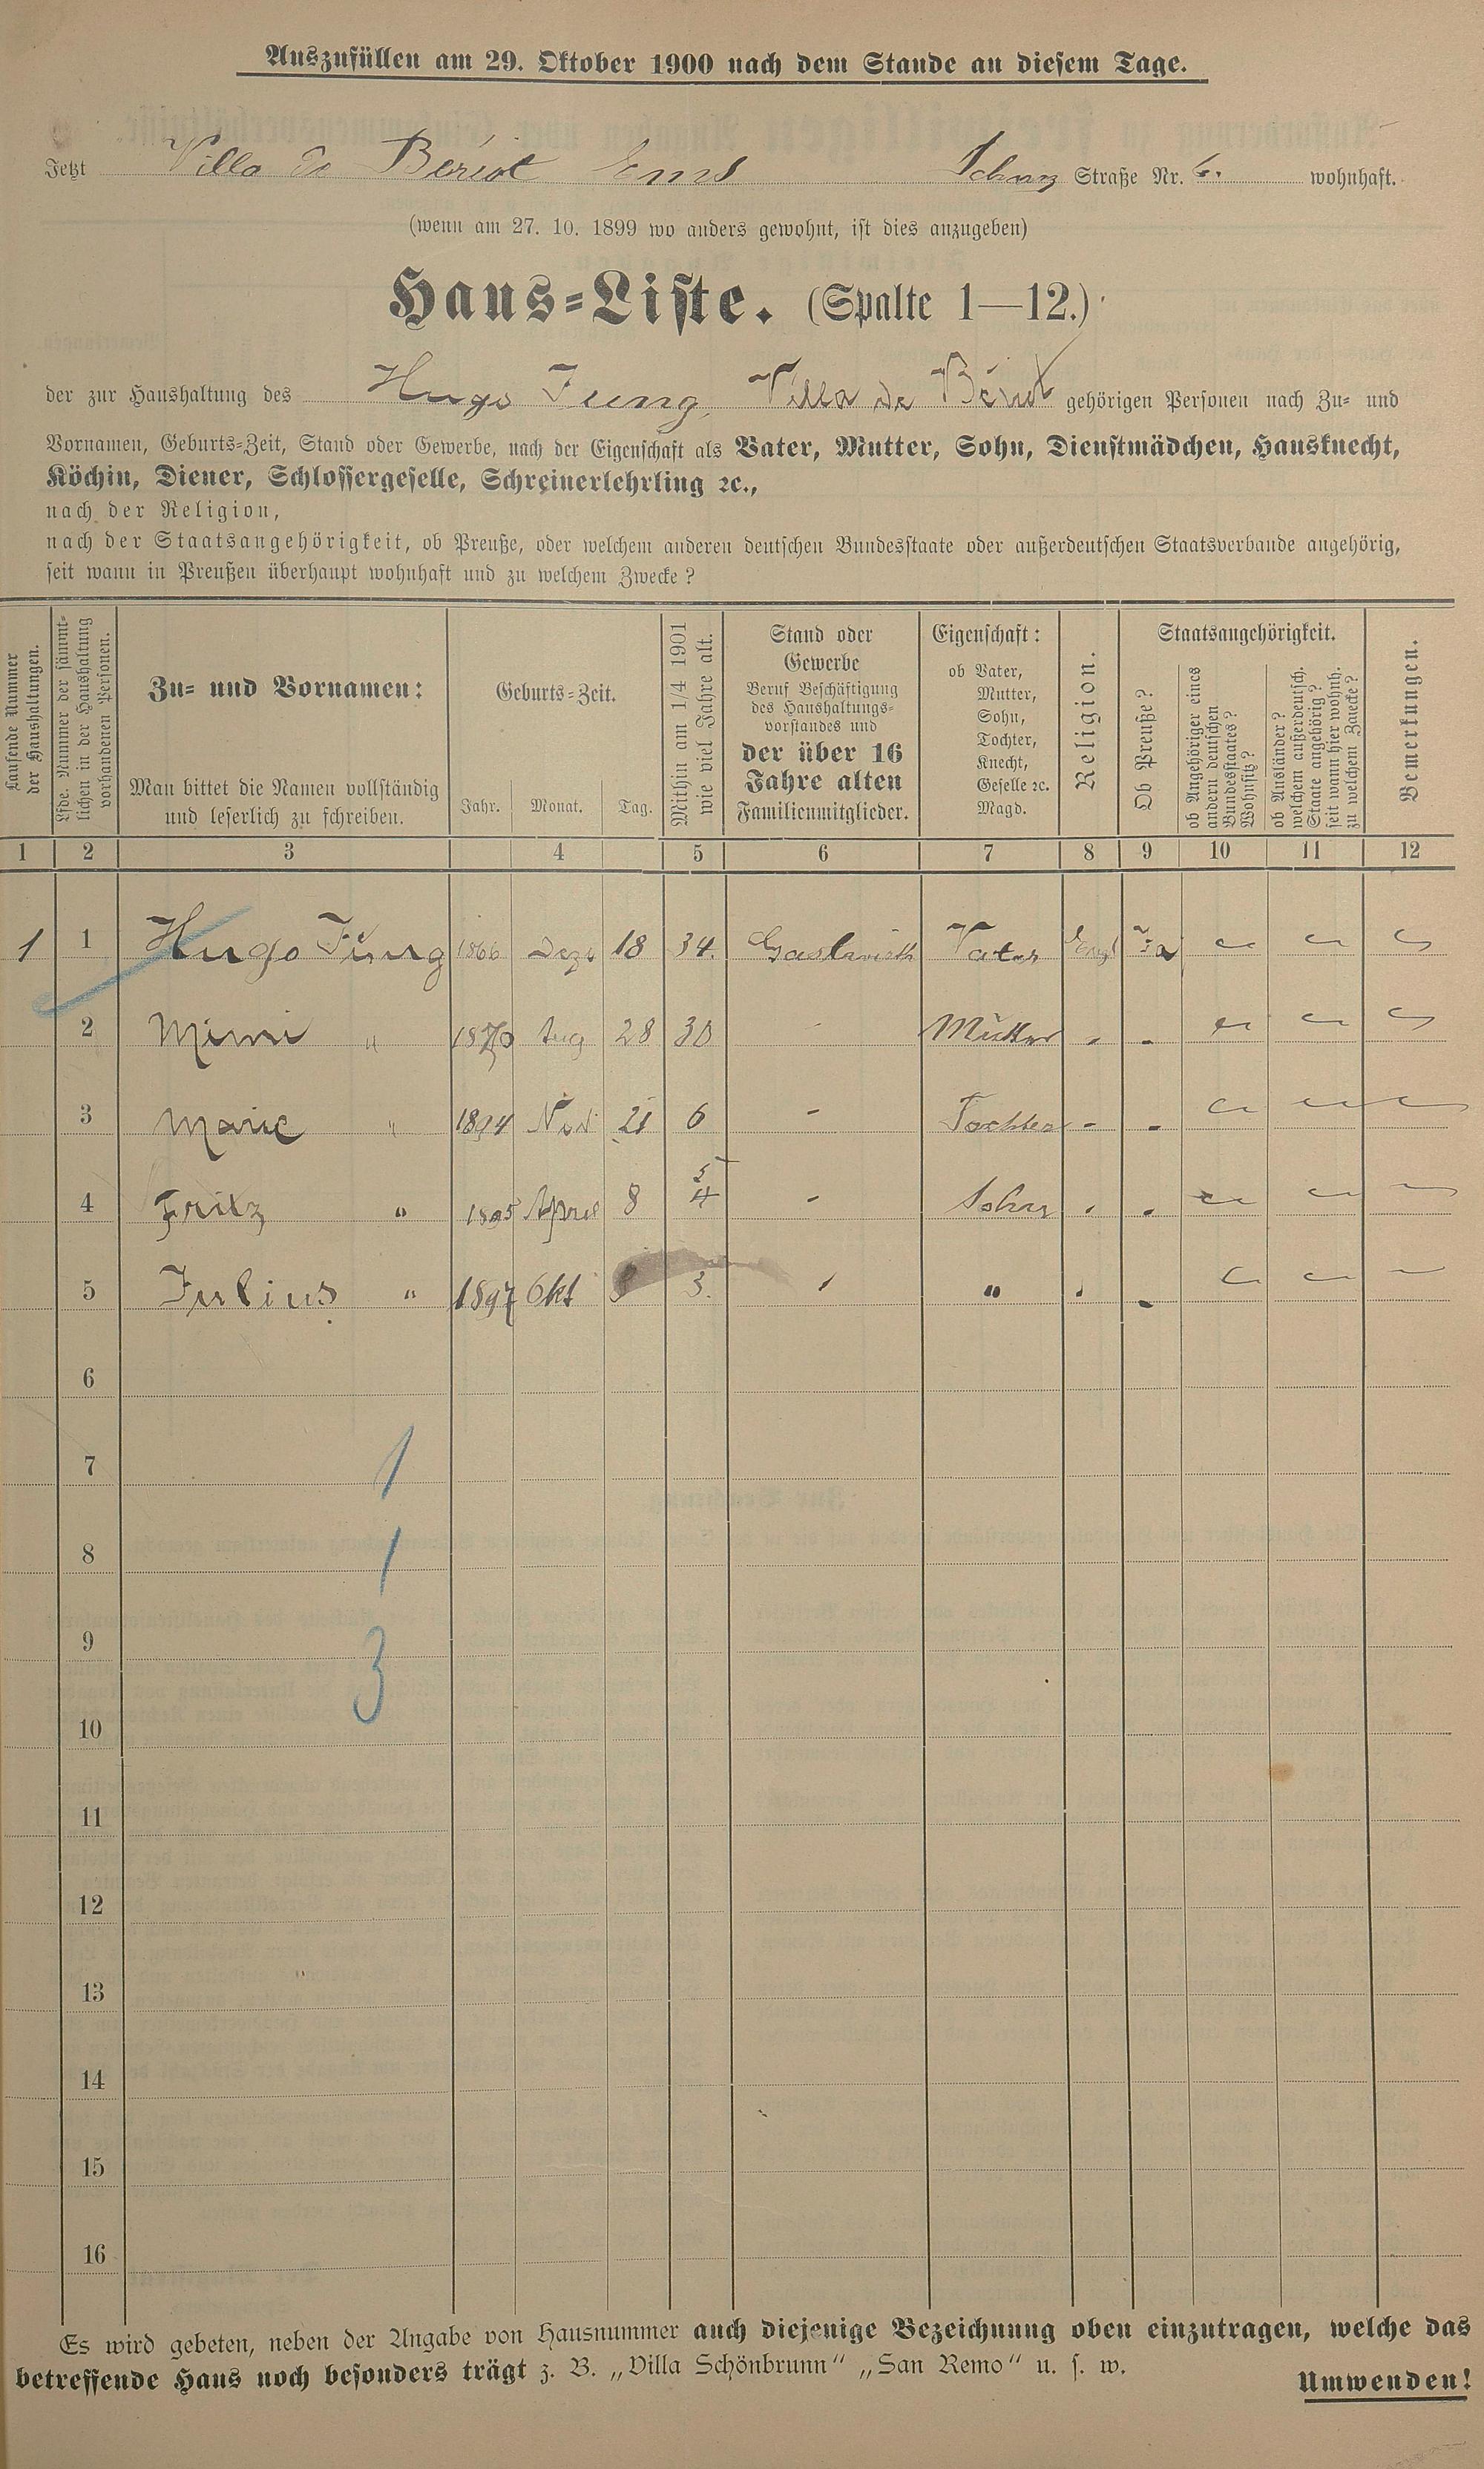 Auszufüllen am 29. Oktober 1900 nach dem Stande an diesem Tage.
Jetzt Villa de Bériot Ems Straße Nr. 6. wohnhaft.
(wenn am 27. 10. 1899 wo anders gewohnt, ist dies anzugeben)
Haus-Liste. (Spalte 1—12.)
der zur Haushaltung des Hugo Jung, Villa de Bériot gehörigen Personen nach Zu- und
Vornamen, Geburts-Zeit, Stand oder Gewerbe, nach der Eigenschaft als Vater, Mutter, Sohn, Dienstmädchen, Hausknecht,
Köchin, Diener, Schlossergeselle, Schreinerlehrling ꝛc.,
nach der Religion,
nach der Staatsangehörigkeit, ob Preuße, oder welchem anderen deutschen Bundesstaate oder außerdeutschen Staatsverbande angehörig,
seit wann in Preußen überhaupt wohnhaft und zu welchem Zwecke?
Laufende Nummer
der Haushaltungen.
Lfde. Nummer der sämmt-
lichen in der Haushaltung
vorhandenen Personen.
Zu- und Vornamen:
Man bittet die Namen vollständig
und leserlich zu schreiben.
Geburts-Zeit.
Jahr. Monat. Tag.
Mithin am 1/4 1901
wie viel Jahre alt.
Stand oder
Gewerbe
Beruf Beschäftigung
des Haushaltungs-
vorstandes und
der über 16
Jahre alten
Familienmitglieder.
Eigenschaft:
ob Vater,
Mutter,
Sohn,
Tochter,
Knecht,
Geselle ꝛc.
Magd.
Religion.
Staatsangehörigkeit.
Ob Preuße?
ob Angehöriger eines
andern deutschen
Bundesstaates?
Wohnsitz?
ob Ausländer?
welchem außerdeutsch.
Staate angehörig?
seit wann hier wohnh.
zu welchem Zwecke?
Bemerkungen.
1 2 3 4 5 6 7 8 9 10 11 12
1 1 Hugo Jung 1866 Dez 18 34. Gastwirth Vater Evgl Ja
2 Mimi " 1870 Aug 28 30 - Mutter - -
3 Marie " 1894 Nov 21 6 - Tochter - -
4 Fritz " 1895 April 8 4 5 - Sohn - -
5 Julius " 1897 Okt 3. - " - -
6
7 1
8 1
9
3
10
11
12
13
14
15
16
Es wird gebeten, neben der Angabe von Hausnummer auch diejenige Bezeichnung oben einzutragen, welche das
betreffende Haus noch besonders trägt z. B. „Villa Schönbrunn“ „San Remo“ u. s. w.
Umwenden!